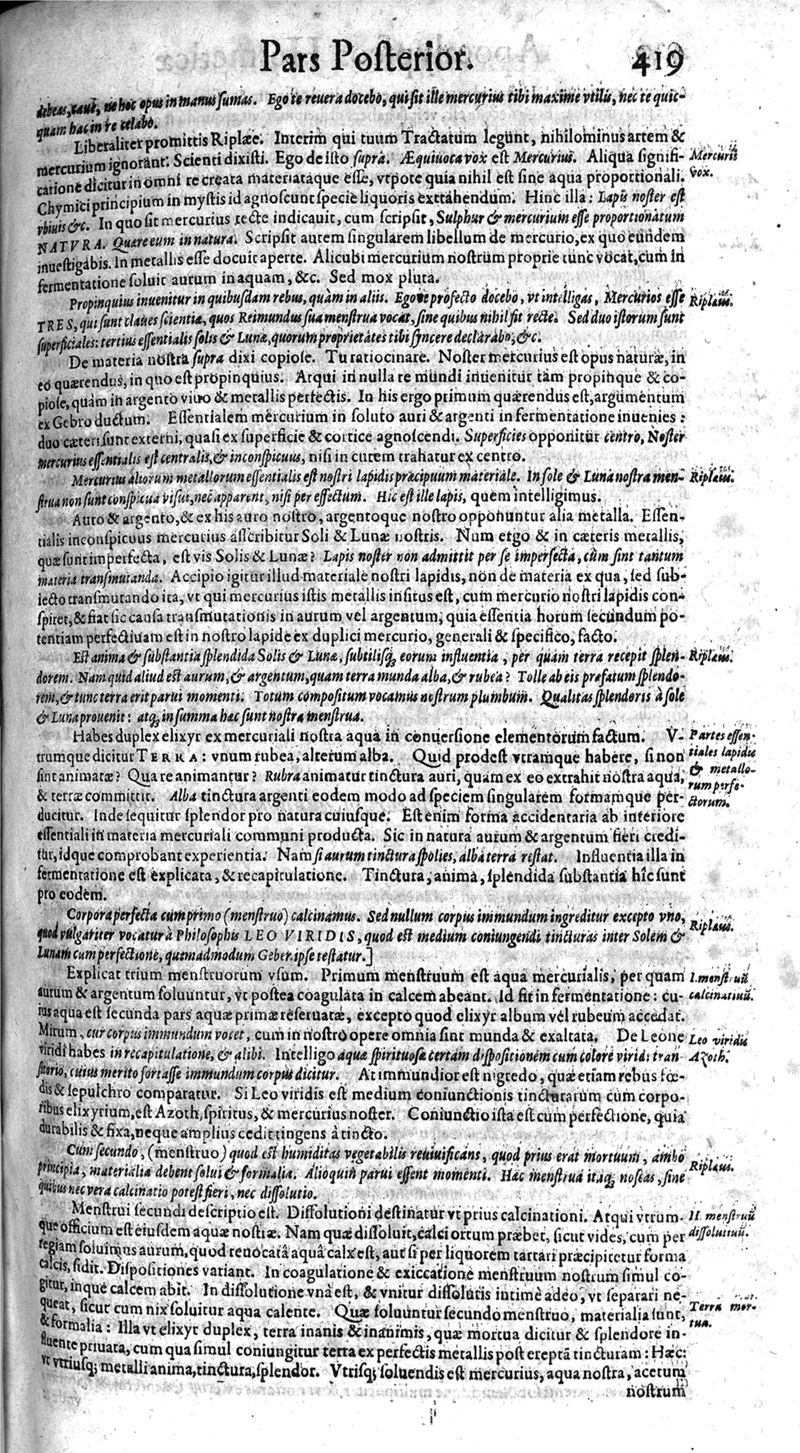 Pars Posterior. 419
debeas, caue, ne hoc opus in manus sumas. Ego te reuera docebo, qui sit ille mercurius tibi maxime vtilis, nec te quic-
quam hac in re celabo.
Liberaliter promittis Riplæe. Interim qui tuum Tractatum legunt, nihilominus artem &
mercurium ignorant. Scienti dixisti. Ego de isto supra. Æquiuoca vox est Mercurius. Aliqua signifi- Mercurii
catione dicitur in omni re creata materiataque esse, vtpote quia nihil est sine aqua proportionali. vox.
Chymici principium in mystis id agnoscunt specie liquoris extrahendum. Hinc illa: Lapis noster est
vbiuis &c. In quo sit mercurius recte indicauit, cum scripsit, Sulphur & mercurium esse proportionatum
NATVRA. Quare eum in natura. Scripsit autem singularem libellum de mercurio, ex quo eundem
inuestigabis. In metallis esse docuit aperte. Alicubi mercurium nostrum proprie tunc vocat, cum in
fermentatione soluit aurum in aquam, &c. Sed mox plura.
Propinquius inuenitur in quibusdam rebus, quàm in aliis. Ego te profecto docebo, vt intelligas, Mercurios esse Riplæus.
TRES, qui sunt claues scientiæ, quos Reimundus sua menstrua vocat, sine quibus nihil fit recte. Sed duo istorum sunt
superficiales: tertius essentialis solis & Lunæ, quorum proprietates tibi syncere declarabo, &c.
De materia nostra supra dixi copiose. Tu ratiocinare. Noster mercurius est opus naturæ, in
eo quærendus, in quo est propinquius. Atqui in nulla re mundi inuenitur tam propinque & co-
piose, quàm in argento viuo & metallis perfectis. In his ergo primum quærendus est, argumentum
ex Gebro ductum. Essentialem mercurium in soluto auri & argenti in fermentatione inuenies:
duo cæteri sunt externi, quasi ex superficie & cortice agnoscendi. Superficies opponitur centro, Noster
mercurius essentialis est centralis, & inconspicuus, nisi in cutem trahatur ex centro.
Mercurius aliorum metallorum essentialis est nostri lapidis præcipuum materiale. In sole & Luna nostra men- Riplæus.
strua non sunt conspicua visui, nec apparent, nisi per effectum. Hic est ille lapis, quem intelligimus.
Auro & argento, & ex his auro nostro, argentoque nostro opponuntur alia metalla. Essen-
tialis inconspicuus mercurius adscribitur Soli & Lunæ nostris. Num ergo & in cæteris metallis,
quæ sunt imperfecta, est vis Solis & Lunæ? Lapis noster non admittit per se imperfecta, cùm sint tantum
materia transmutanda. Accipio igitur illud materiale nostri lapidis, non de materia ex qua, sed sub-
iecto transmutando ita, vt qui mercurius istis metallis insitus est, cum mercurio nostri lapidis con-
spiret, & fiat sic causa transmutationis in aurum vel argentum, quia essentia horum secundum po-
tentiam perfectiuam est in nostro lapide ex duplici mercurio, generali & specifico, facto.
Est anima & substantia splendida Solis & Lunæ, subtilisq́; eorum influentia, per quam terra recepit splen- Riplæus.
dorem. Nam quid aliud est aurum, & argentum, quam terra munda alba, & rubea? Tolle ab eis præfatum splendo-
rem, & tunc terra erit parui momenti. Totum compositum vocamus nostrum plumbum. Qualitas splendoris à sole
& Luna prouenit: atq; in summa hæc sunt nostra menstrua.
Habes duplex elixyr ex mercuriali nostra aqua in conuersione elementorum factum. V- Partes essen-
trumque dicitur TERRA: vnum rubea, alterum alba. Quid prodest vtramque habere, si non tiales lapidis
sint animatæ? Qua re animantur? Rubra animatur tinctura auri, quam ex eo extrahit nostra aqua, & metallo-
& terræ committit. Alba tinctura argenti eodem modo ad speciem singularem formamque per- rum perfe-
ducitur. Inde sequitur splendor pro natura cuiusque. Est enim forma accidentaria ab interiore ctorum.
essentiali in materia mercuriali communi producta. Sic in natura aurum & argentum fieri credi-
tur, idque comprobant experientia. Nam si aurum tinctura spolies, alba terra restat. Influentia illa in
fermentatione est explicata, & recapitulatione. Tinctura, anima, splendida substantia hîc sunt
pro eodem.
Corpora perfecta cum primo (menstruo) calcinamus. Sed nullum corpus immundum ingreditur excepto vno, Riplæus.
quod vulgariter vocatur à Philosophis LEO VIRIDIS, quod est medium coniungendi tincturas inter Solem &
Lunam cum perfectione, quemadmodum Geber ipse testatur.]
Explicat trium menstruorum vsum. Primum menstruum est aqua mercurialis, per quam I. menstruū
aurum & argentum soluuntur, vt postea coagulata in calcem abeant. Id fit in fermentatione: cu- calcinatiuū.
ius aqua est secunda pars aquæ primæ reseruatæ, excepto quod elixyr album vel rubeum accedat.
Mirum, cur corpus immundum vocet, cum in nostro opere omnia sint munda & exaltata. De Leone Leo viridis
viridi habes in recapitulatione, & alibi. Intelligo aquæ spirituosæ certam dispositionem cum colore viridi tran- Azoth.
sitorio, cuius merito fortasse immundum corpus dicitur. At immundior est nigredo, quæ etiam rebus fœ-
dis & sepulchro comparatur. Si Leo viridis est medium coniunctionis tincturarum cum corpo-
ribus elixyrium, est Azoth, spiritus, & mercurius noster. Coniunctio ista est cum perfectione, quia
durabilis & fixa, neque amplius cedit tingens à tincto.
Cum secundo, (menstruo) quod est humiditas vegetabilis reuiuificans, quod prius erat mortuum, ambo
principia, materialia debent solui & formalia. Alioquin parui essent momenti. Hæc menstrua itaq; noscas, sine Riplæus.
quibus nec vera calcinatio potest fieri, nec dissolutio.
Menstrui secundi descriptio est. Dissolutioni destinatur vt prius calcinationi. Atqui vtrum- II. menstruū
que officium est eiusdem aquæ nostræ. Nam quæ dissoluit, calci ortum præbet, sicut vides, cum per dissolutiuū.
regiam soluimus aurum, quod reuocata aqua calx est, aut si per liquorem tartari præcipitetur forma
calcis, sidit. Dispositiones variant. In coagulatione & exiccatione menstruum nostrum simul co-
gitur, inque calcem abit. In dissolutione vnà est, & vnitur dissolutis intimè adeo, vt separari ne-
queat, sicut cum nix soluitur aqua calente. Quæ soluuntur secundo menstruo, materialia sunt, Terra mor-
& formalia: Illa vt elixyr duplex, terra inanis & inanimis, quæ mortua dicitur & splendore in- tua.
fluente priuata, cum qua simul coniungitur terra ex perfectis metallis post ereptā tincturam: Hæc:
vt vtriusq; metalli anima, tinctura, splendor. Vtrisq; soluendis est mercurius, aqua nostra, acetum
nostrum